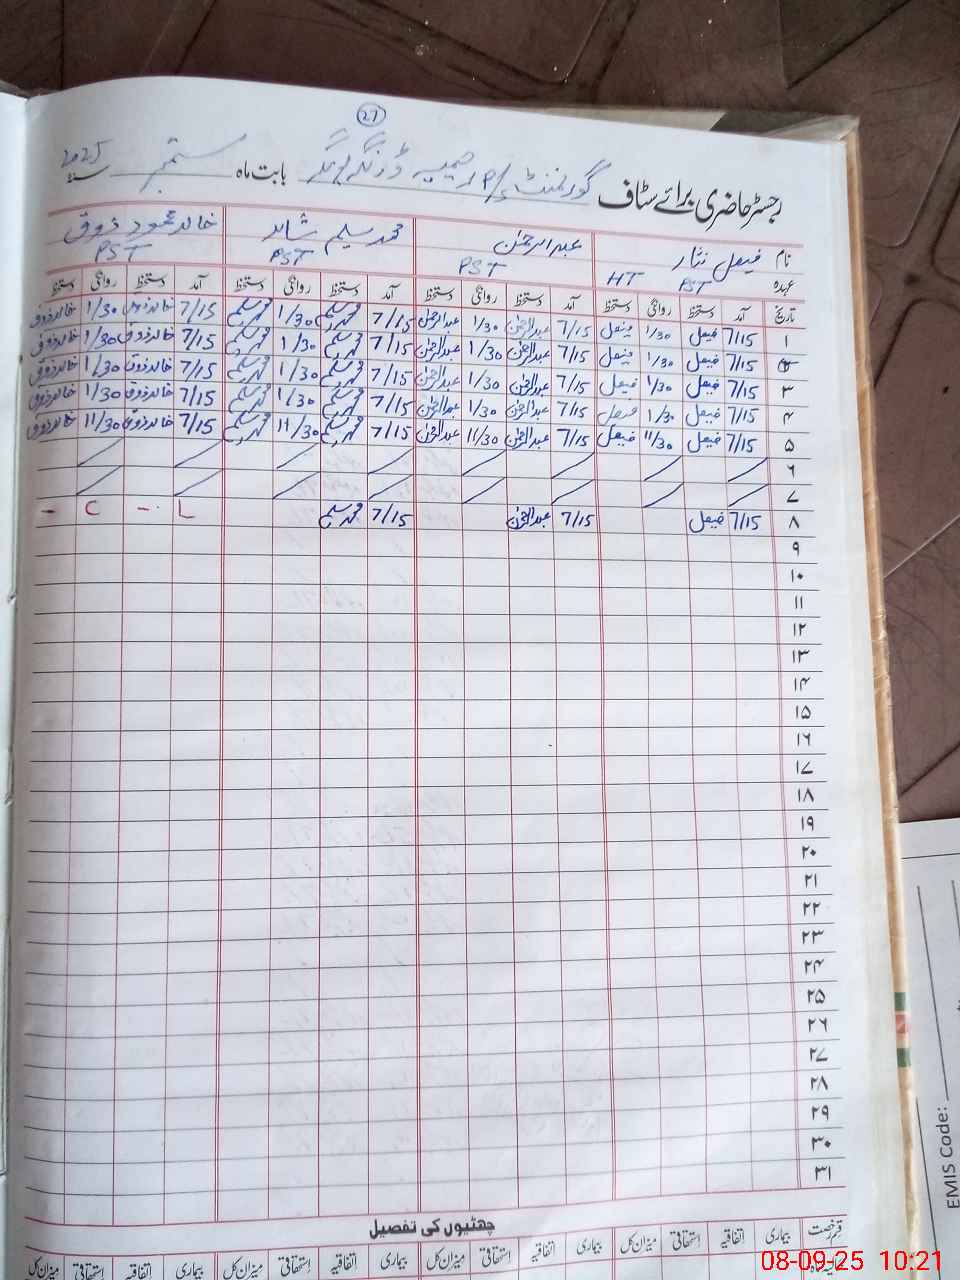 27
رجسٹر حاضری برائے سٹاف گورنمنٹ بابت ماہ ستمبر سنہ 2025
نام فیصل نثار عبدالرحمٰن محمد سلیم شاہد خالد محمود ذوق
عہدہ PST HT PST PST PST
تاریخ آمد دستخط روانگی دستخط آمد دستخط روانگی دستخط آمد دستخط روانگی دستخط آمد دستخط روانگی دستخط
۱ 7/15 فیصل 1/30 فیصل 7/15 عبدالرحمٰن 1/30 عبدالرحمٰن 7/15 محمد سلیم 1/30 محمد سلیم 7/15 خالد ذوق 1/30 خالد ذوق
7/15 فیصل 1/30 فیصل 7/15 عبدالرحمٰن 1/30 عبدالرحمٰن 7/15 محمد سلیم 1/30 محمد سلیم 7/15 خالد ذوق 1/30 خالد ذوق
۳ 7/15 فیصل 1/30 فیصل 7/15 عبدالرحمٰن 1/30 عبدالرحمٰن 7/15 محمد سلیم 1/30 محمد سلیم 7/15 خالد ذوق 1/30 خالد ذوق
۴ 7/15 فیصل 1/30 فیصل 7/15 عبدالرحمٰن 1/30 عبدالرحمٰن 7/15 محمد سلیم 1/30 محمد سلیم 7/15 خالد ذوق 1/30 خالد ذوق
۵ 7/15 فیصل 11/30 فیصل 7/15 عبدالرحمٰن 11/30 عبدالرحمٰن 7/15 محمد سلیم 11/30 محمد سلیم 7/15 خالد ذوق 11/30 خالد ذوق
۶
۷
۸ 7/15 فیصل 7/15 عبدالرحمٰن 7/15 محمد سلیم L - C -
۹
۱۰
۱۱
۱۲
۱۳
۱۴
۱۵
۱۶
۱۷
۱۸
۱۹
۲۰
۲۱
۲۲
۲۳
۲۴
۲۵
۲۶
۲۷
۲۸
۲۹
۳۰
۳۱
چھٹیوں کی تفصیل
قسم رخصت بیماری اتفاقیہ استحقاقی میزان کل بیماری اتفاقیہ استحقاقی میزان کل بیماری اتفاقیہ استحقاقی میزان کل بیماری اتفاقیہ استحقاقی میزان کل
EMIS Code:
08-09-25 10:21